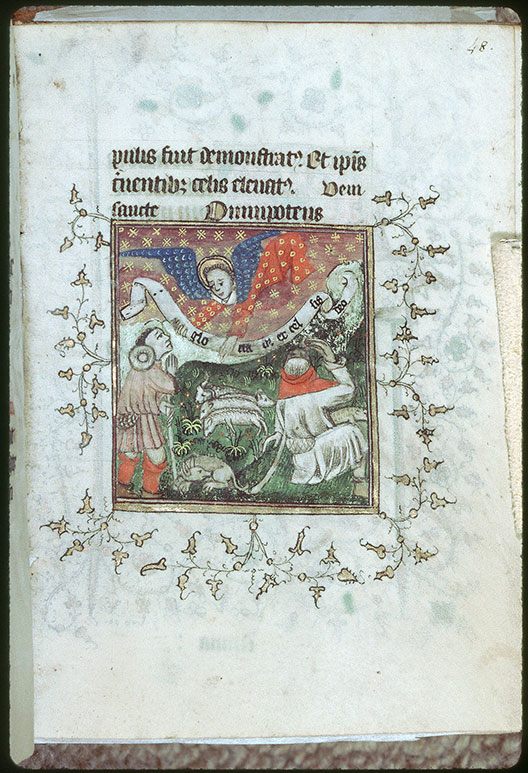 48.
pulis fuit demonstrat⁹. Et ip̃is
c̃nentibꝫ celis eleuat⁹. Veni
sancte Omnipotens
glo ria in ex cel sis deo